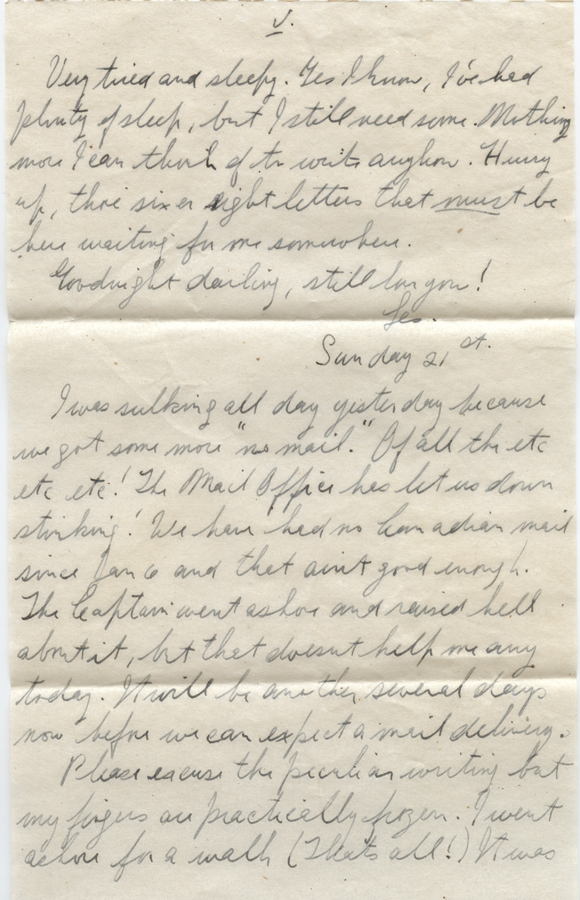 V.
Very tired and sleepy. Yes I know, I've had
plenty of sleep, but I still need some. Nothing
more I can think of to write anyhow. Hurry
up, those six or eight letters that must be
here waiting for me somewhere.
Goodnight darling, still love you!
Les.
Sunday 21st.
I was sulking all day yesterday because
we got some more "no mail." Of all the etc
etc etc! The Mail Office has let us down
stinking! We have had no Canadian mail
since Jan 6 and that ain't good enough.
The Captain went ashore and raised hell
about it, but that doesn't help me any
today. It will be another several days
now before we can expect a mail delivery.
Please excuse the peculiar writing but
my fingers are practically frozen. I went
ashore for a walk (That's all!) It was